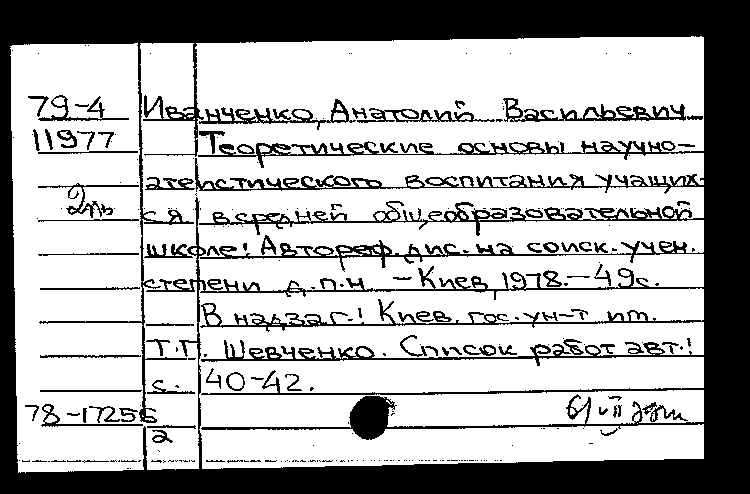 79-4 Иванченко, Анатолий Васильевич
11977 Теоретические основы научно-
атеистического воспитания учащих-
ся в средней общеобразовательной
школе: Автореф. дис. на соиск. учен.
степени д.п.н. – Киев, 1978. – 49с.
В надзаг.: Киев. гос. ун-т им.
Т.Г. Шевченко. Список работ авт.:
с. 40-42.
78-17256
а